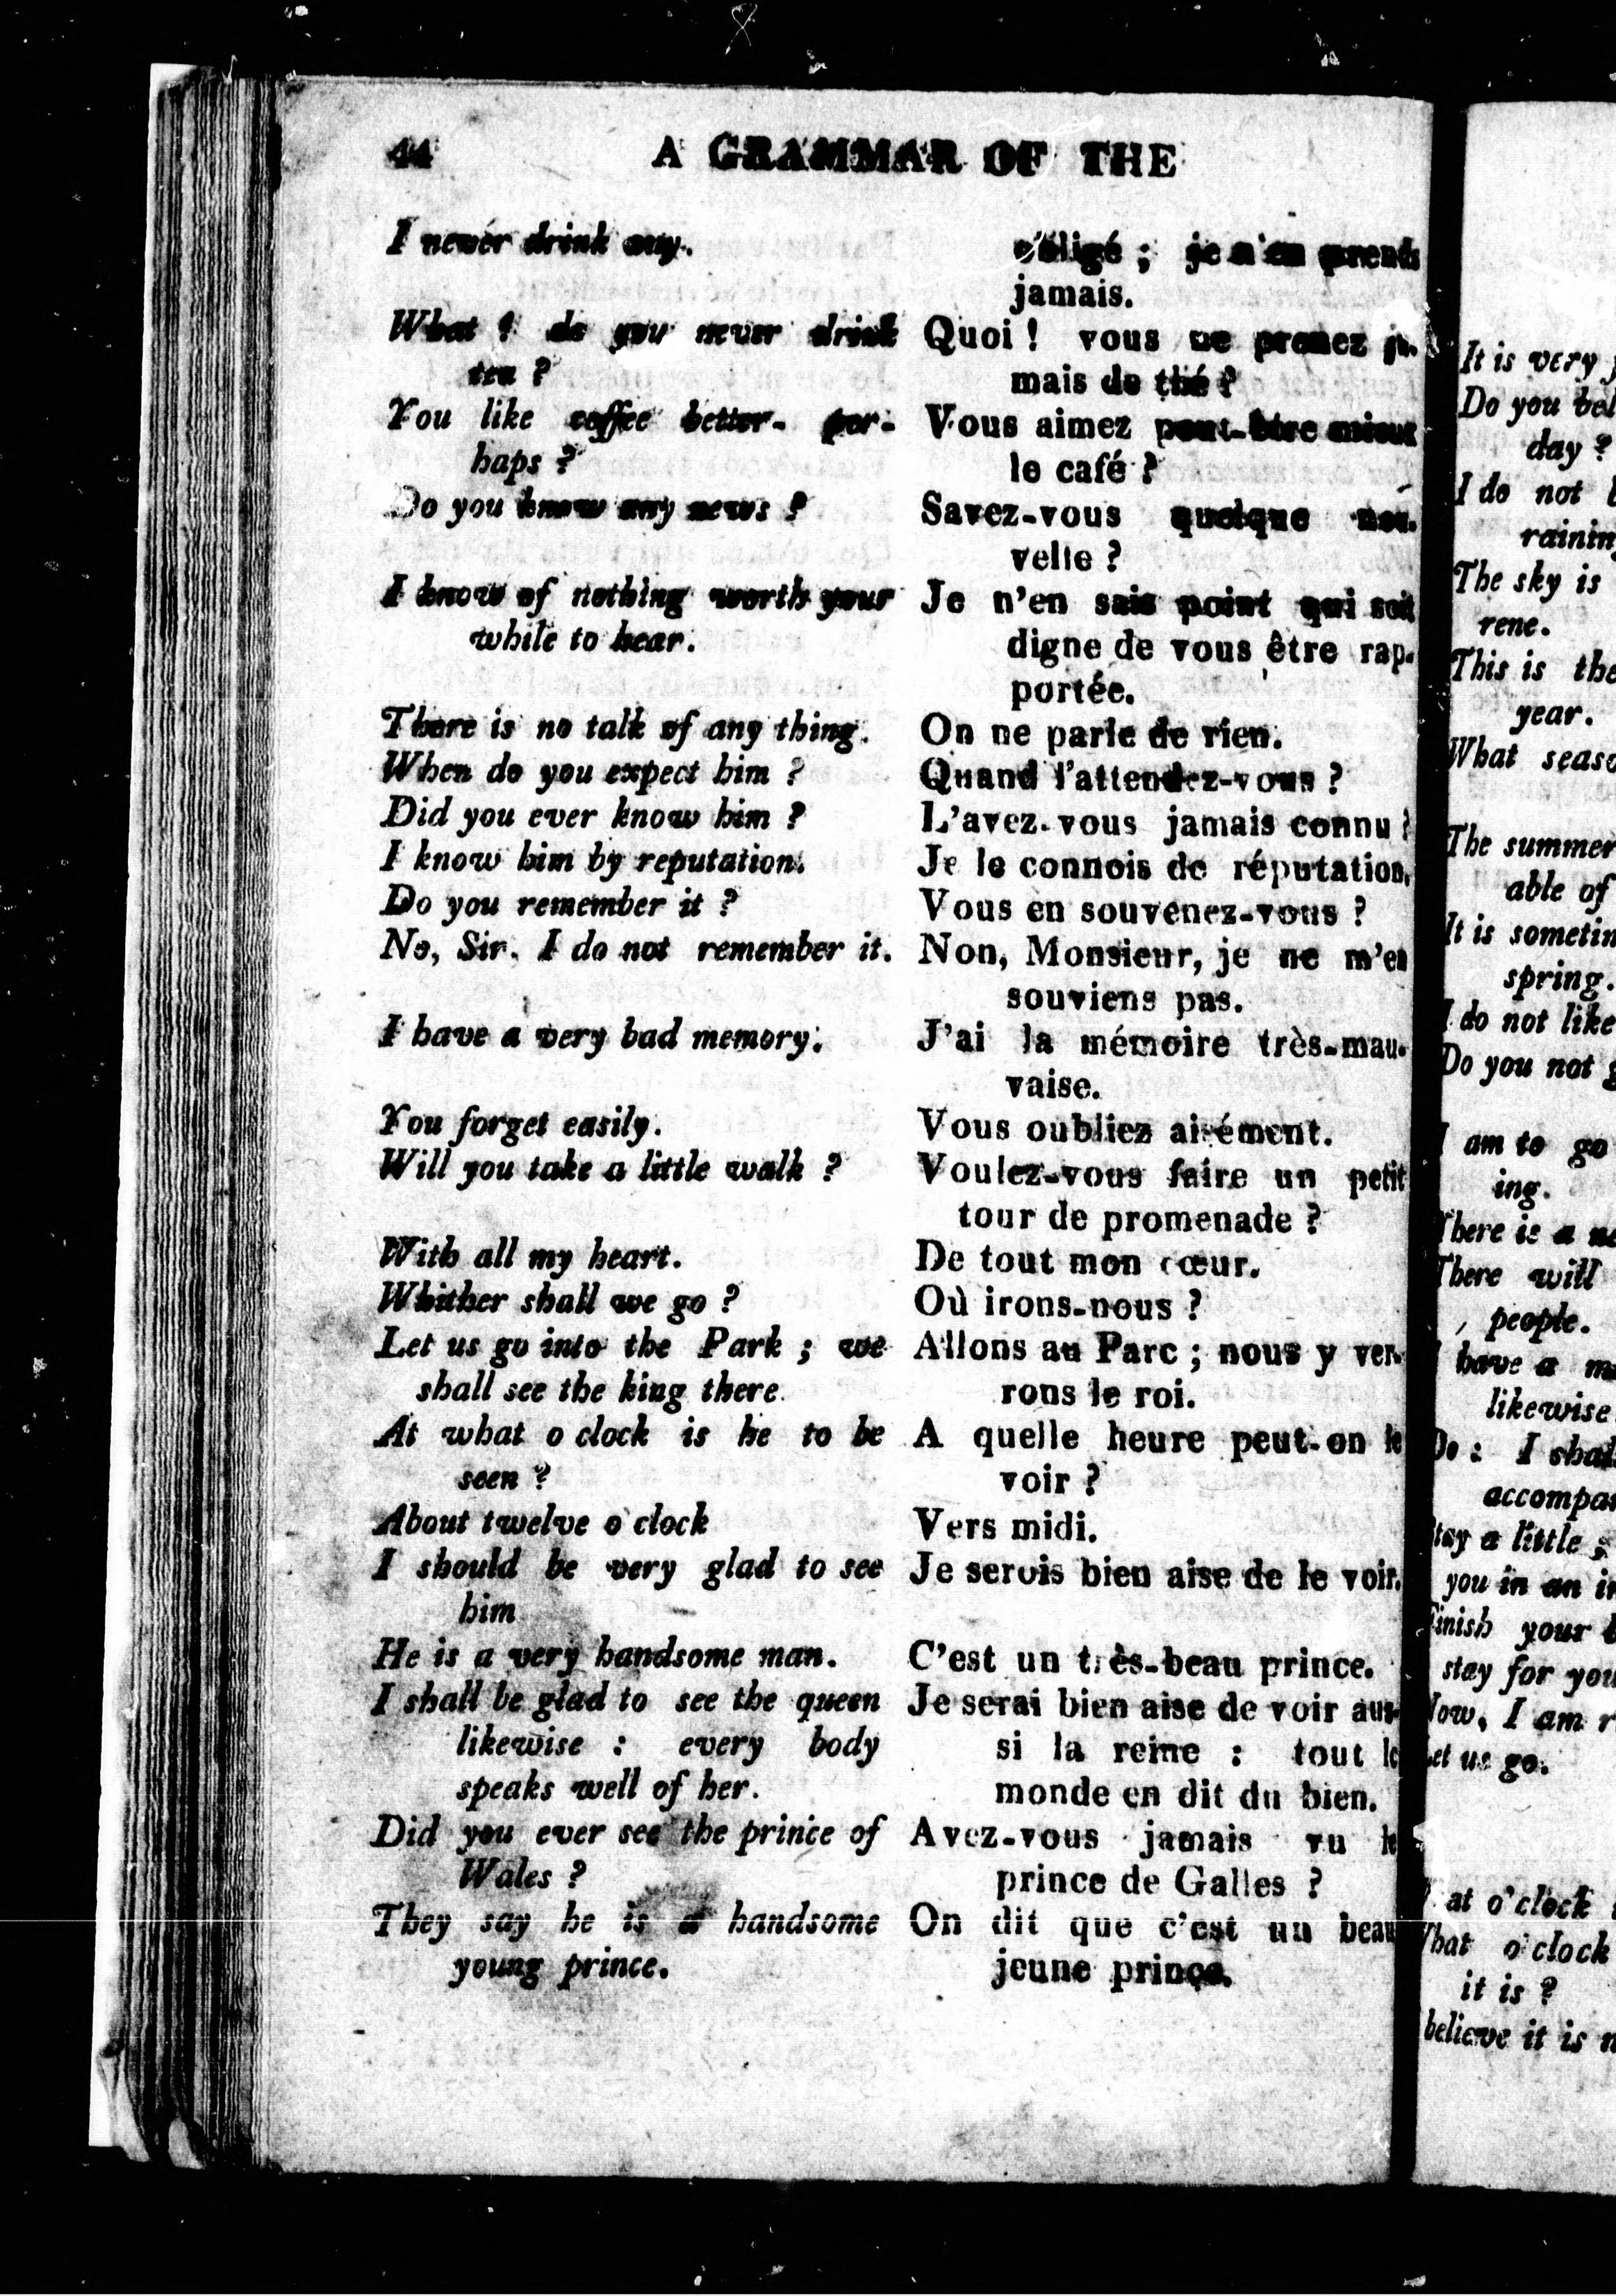 44 A GRAMMAR OF THE
I never drink any.
obligé ; je n'en prends
jamais.
What ! do you never drink
tea ?
You like coffee better- per-
haps ?
Do you know any news ?
I know of nothing worth your
while to hear.
There is no talk of any thing.
When do you expect him ?
Did you ever know him ?
I know him by reputation.
Do you remember it ?
No, Sir. I do not remember it.
I have a very bad memory.
You forget easily.
Will you take a little walk ?
With all my heart.
Whither shall we go ?
Let us go into the Park ; we
shall see the king there.
At what o clock is he to be
seen ?
About twelve o clock
I should be very glad to see
him
He is a very handsome man.
I shall be glad to see the queen
likewise : every body
speaks well of her.
Did you ever see the prince of
Wales ?
They say he is a handsome
young prince.
Quoi ! vous ne prenez ja-
mais de thé ?
Vous aimez peut-être mieux
le café ?
Savez-vous quelque nou-
velle ?
Je n'en sais point qui soit
digne de vous être rap-
portée.
On ne parle de rien.
Quand l'attendez-vous ?
L'avez-vous jamais connu ?
Je le connois de réputation.
Vous en souvenez-vous ?
Non, Monsieur, je ne m'en
souviens pas.
J'ai la mémoire très-mau-
vaise.
Vous oubliez aisément.
Voulez-vous faire un petit
tour de promenade ?
De tout mon cœur.
Où irons-nous ?
Allons au Parc ; nous y ver-
rons le roi.
A quelle heure peut-on le
voir ?
Vers midi.
Je serois bien aise de le voir.
C'est un très-beau prince.
Je serai bien aise de voir aus-
si la reine : tout le
monde en dit du bien.
Avez-vous jamais vu le
prince de Galles ?
On dit que c'est un beau
jeune prince.
It is very
Do you
day ?
I do not
The sky is
rene.
This is the
year.
What
The summer
able of
It is
spring.
I do not like
Do you not
I am to go
ing.
There is a
There will
people.
I have a
likewise
Do : I
Stay a little ;
you in an
Finish your
stay for you
Now, I am
Let us go.
at o'clock
What o'clock
it is ?
believe it is